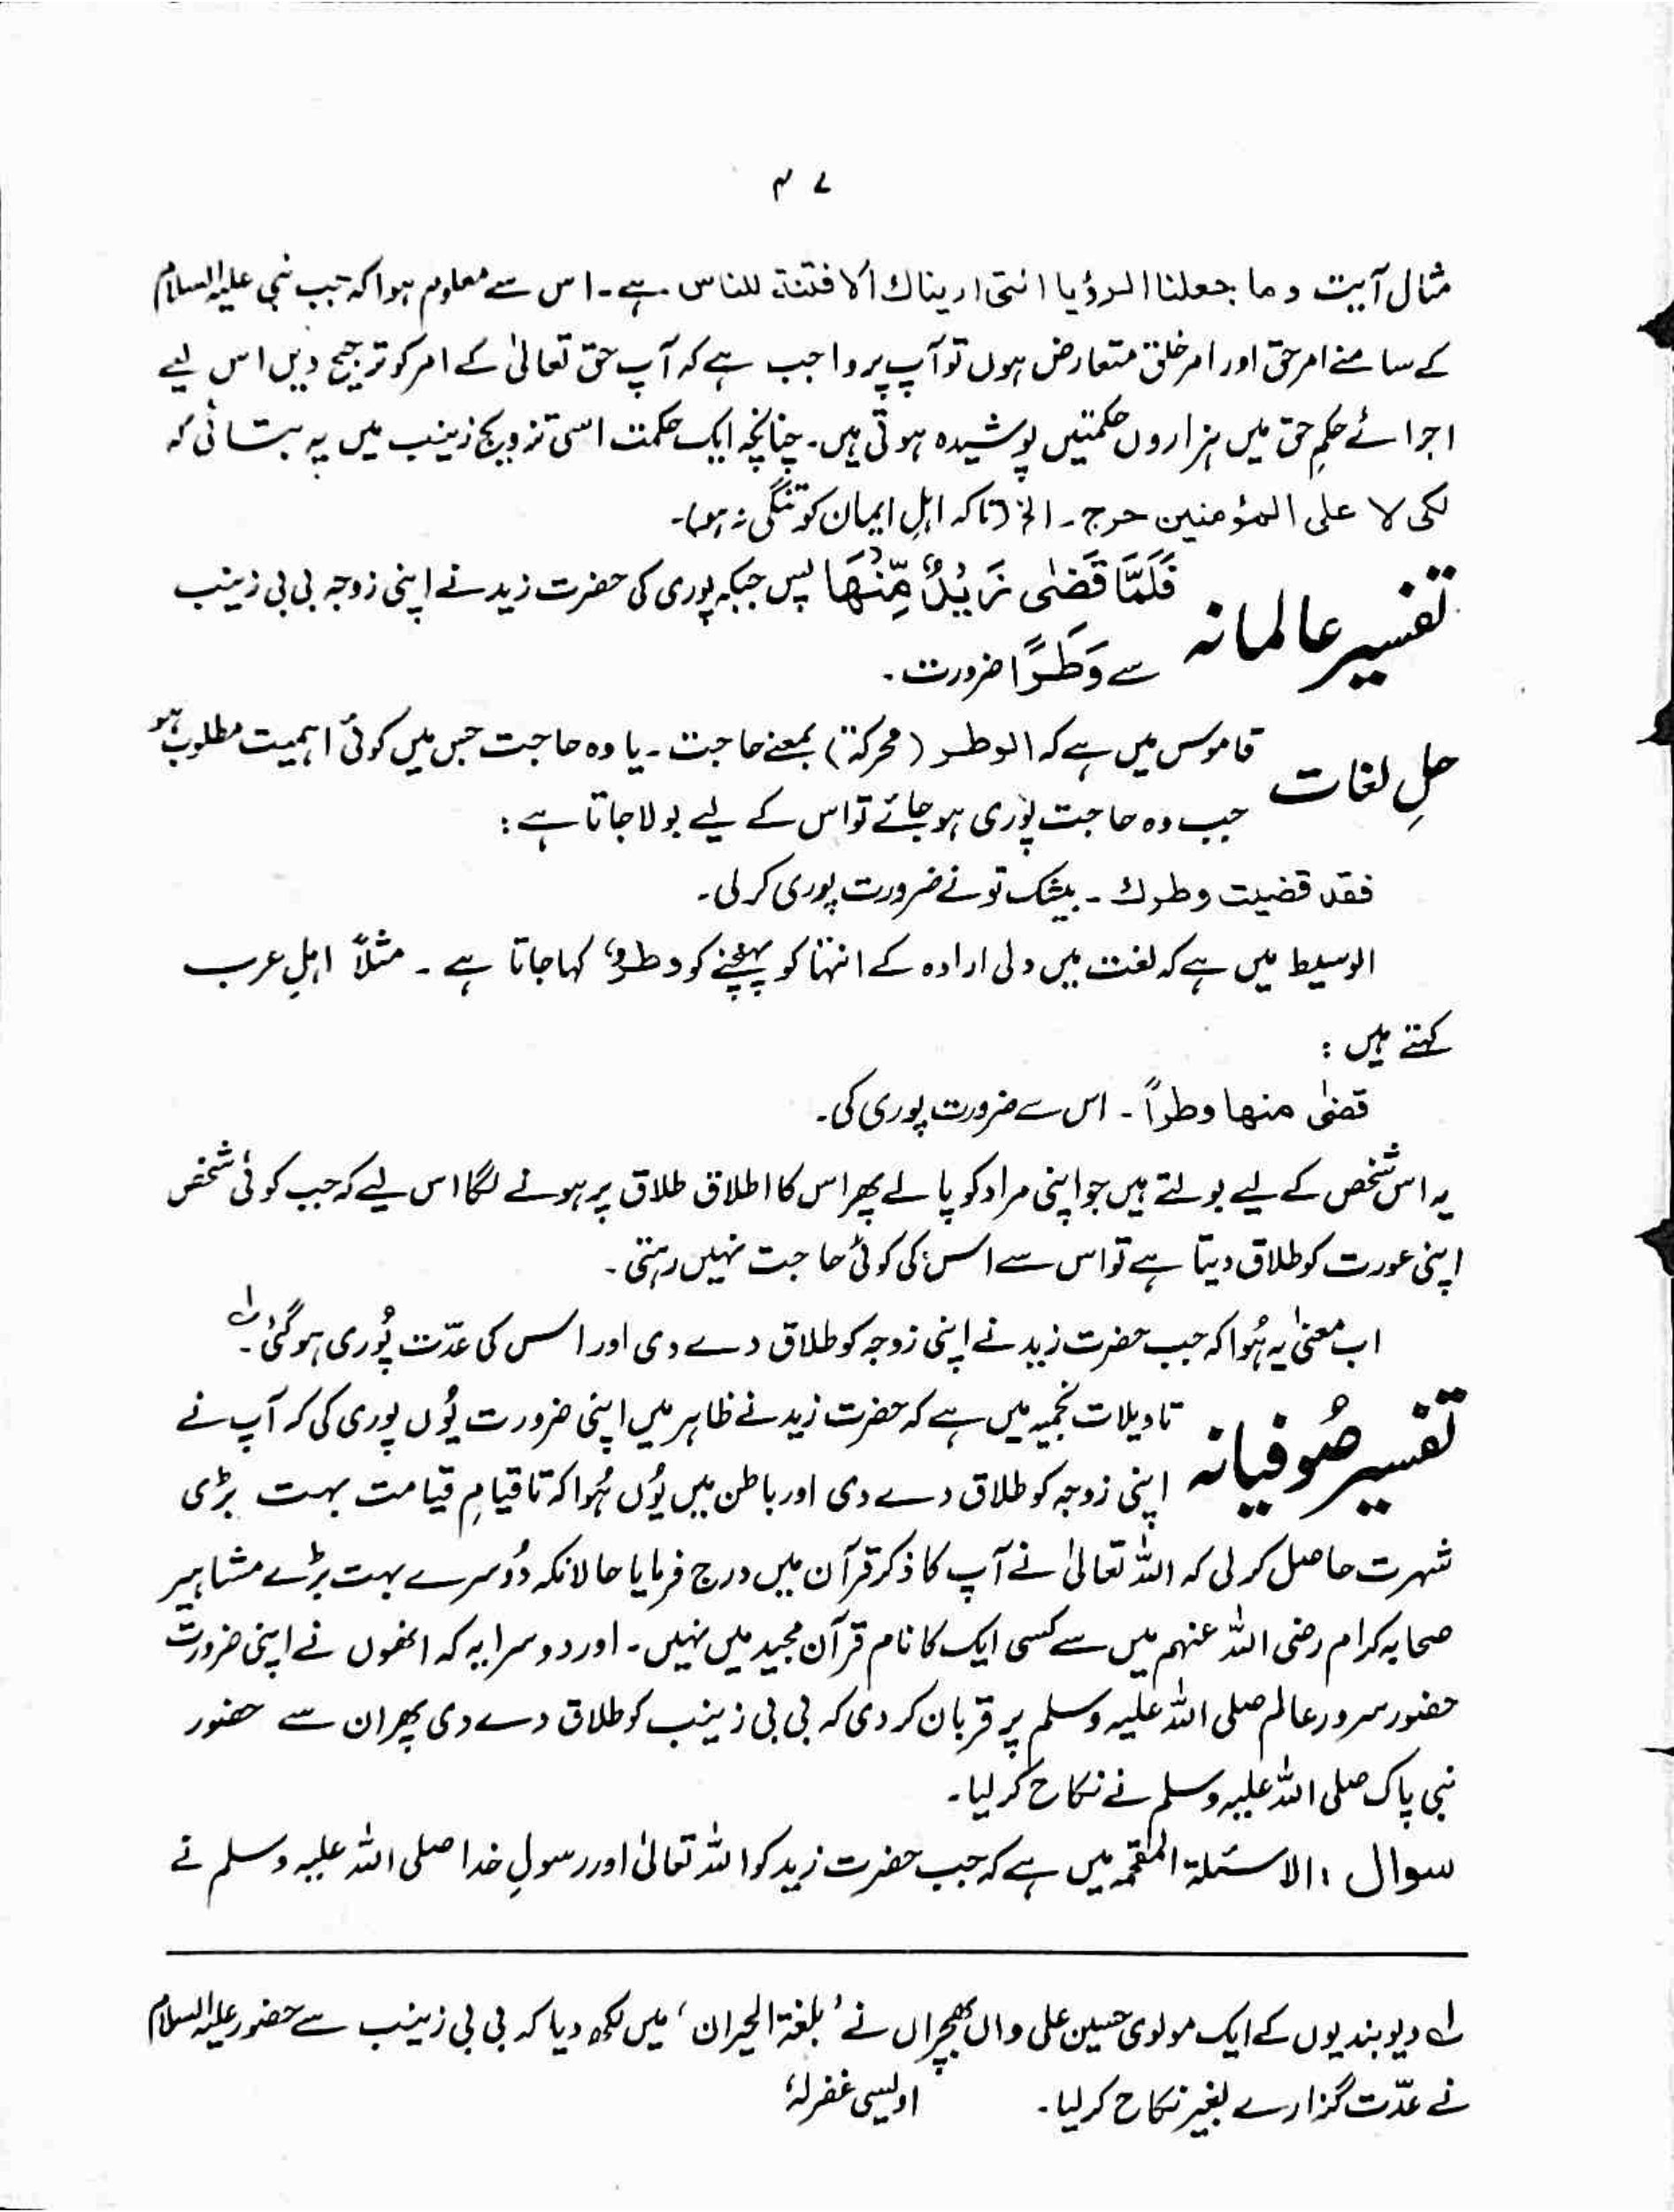 ۴۷
مثال آیت وما جعلنا الرؤیا التی اریناك الا فتنة للناس ہے۔ اس سے معلوم ہوا کہ جب نبی علیہ السلام
کے سامنے امرِ حق اور امرِ خلق متعارض ہوں تو آپ پر واجب ہے کہ آپ حق تعالیٰ کے امر کو ترجیح دیں اس لیے
اجرائے حکمِ حق میں ہزاروں حکمتیں پوشیدہ ہوتی ہیں۔ چنانچہ ایک حکمت اسی تزویج زینب میں یہ بتائی کہ
لکی لا علی المؤمنین حرج۔ الخ (تاکہ اہلِ ایمان کو تنگی نہ ہو)۔
تفسیر عالمانہ فَلَمَّا قَضٰی زَیْدٌ مِّنْهَا پس جبکہ پوری کی حضرت زید نے اپنی زوجہ بی بی زینب
سے وَطَرًا ضرورت۔
حلِ لغات قاموس میں ہے کہ الوطر (محرکۃ) بمعنے حاجت۔ یا وہ حاجت جس میں کوئی اہمیت مطلوب ہو
جب وہ حاجت پوری ہو جائے تو اس کے لیے بولا جاتا ہے :
فقد قضیت وطرك ۔ بیشک تو نے ضرورت پوری کر لی۔
الوسیط میں ہے کہ لغت میں دلی ارادہ کے انتہا کو پہنچنے کو وطرٌ کہا جاتا ہے ۔ مثلاً اہلِ عرب
کہتے ہیں :
قضیٰ منها وطراً ۔ اس سے ضرورت پوری کی۔
یہ اس شخص کے لیے بولتے ہیں جو اپنی مراد کو پا لے پھر اس کا اطلاق طلاق پر ہونے لگا اس لیے کہ جب کوئی شخص
اپنی عورت کو طلاق دیتا ہے تو اس سے اس کی کوئی حاجت نہیں رہتی۔
اب معنیٰ یہ ہُوا کہ جب حضرت زید نے اپنی زوجہ کو طلاق دے دی اور اس کی عدّت پُوری ہو گئی۔ لے
تفسیر صُوفیانہ تاویلات نجمیہ میں ہے کہ حضرت زید نے ظاہر میں اپنی ضرورت یُوں پوری کی کہ آپ نے
اپنی زوجہ کو طلاق دے دی اور باطن میں یُوں ہُوا کہ تا قیامِ قیامت بہت بڑی
شہرت حاصل کر لی کہ اللہ تعالیٰ نے آپ کا ذکر قرآن میں درج فرمایا حالانکہ دُوسرے بہت بڑے مشاہیر
صحابہ کرام رضی اللہ عنہم میں سے کسی ایک کا نام قرآن مجید میں نہیں۔ اور دوسرا یہ کہ انھوں نے اپنی ضرورت
حضور سرور عالم صلی اللہ علیہ وسلم پر قربان کر دی کہ بی بی زینب کو طلاق دے دی پھر ان سے حضور
نبی پاک صلی اللہ علیہ وسلم نے نکاح کر لیا۔
سوال : الاسئلۃ المقحمہ میں ہے کہ جب حضرت زید کو اللہ تعالیٰ اور رسولِ خدا صلی اللہ علیہ وسلم نے
لے دیوبندیوں کے ایک مولوی حسین علی واں بھچراں نے 'بلغۃ الحیران' میں لکھ دیا کہ بی بی زینب سے حضور علیہ السلام
نے عدّت گزارے بغیر نکاح کر لیا۔ اویسی غفرلہٗ